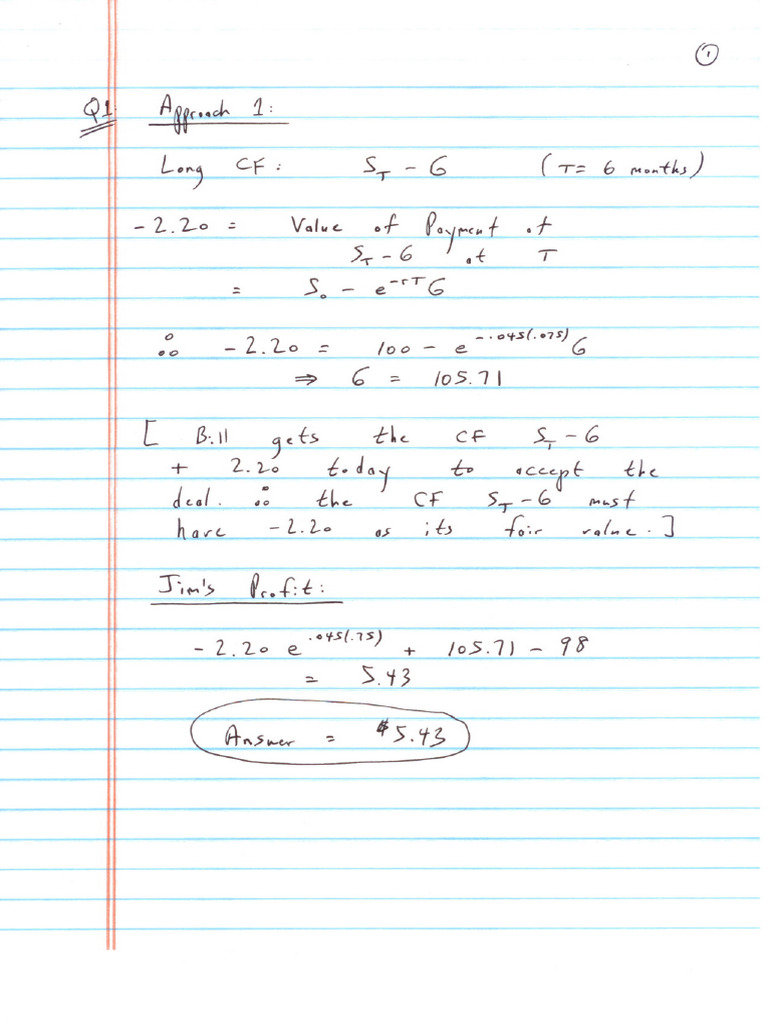 ①
Q1 Approach 1:
Long CF: S_T - G (T= 6 months)
-2.20 = Value of Payment of
S_T - G at T
= S_0 - e^{-rT}G
∴ -2.20 = 100 - e^{-.045(.075)}G
⇒ G = 105.71
[ Bill gets the CF S_T - G
+ 2.20 today to accept the
deal. ∴ the CF S_T - G must
have -2.20 as its fair value. ]
Jim's Profit:
-2.20 e^{.045(.75)} + 105.71 - 98
= 5.43
Answer = $5.43